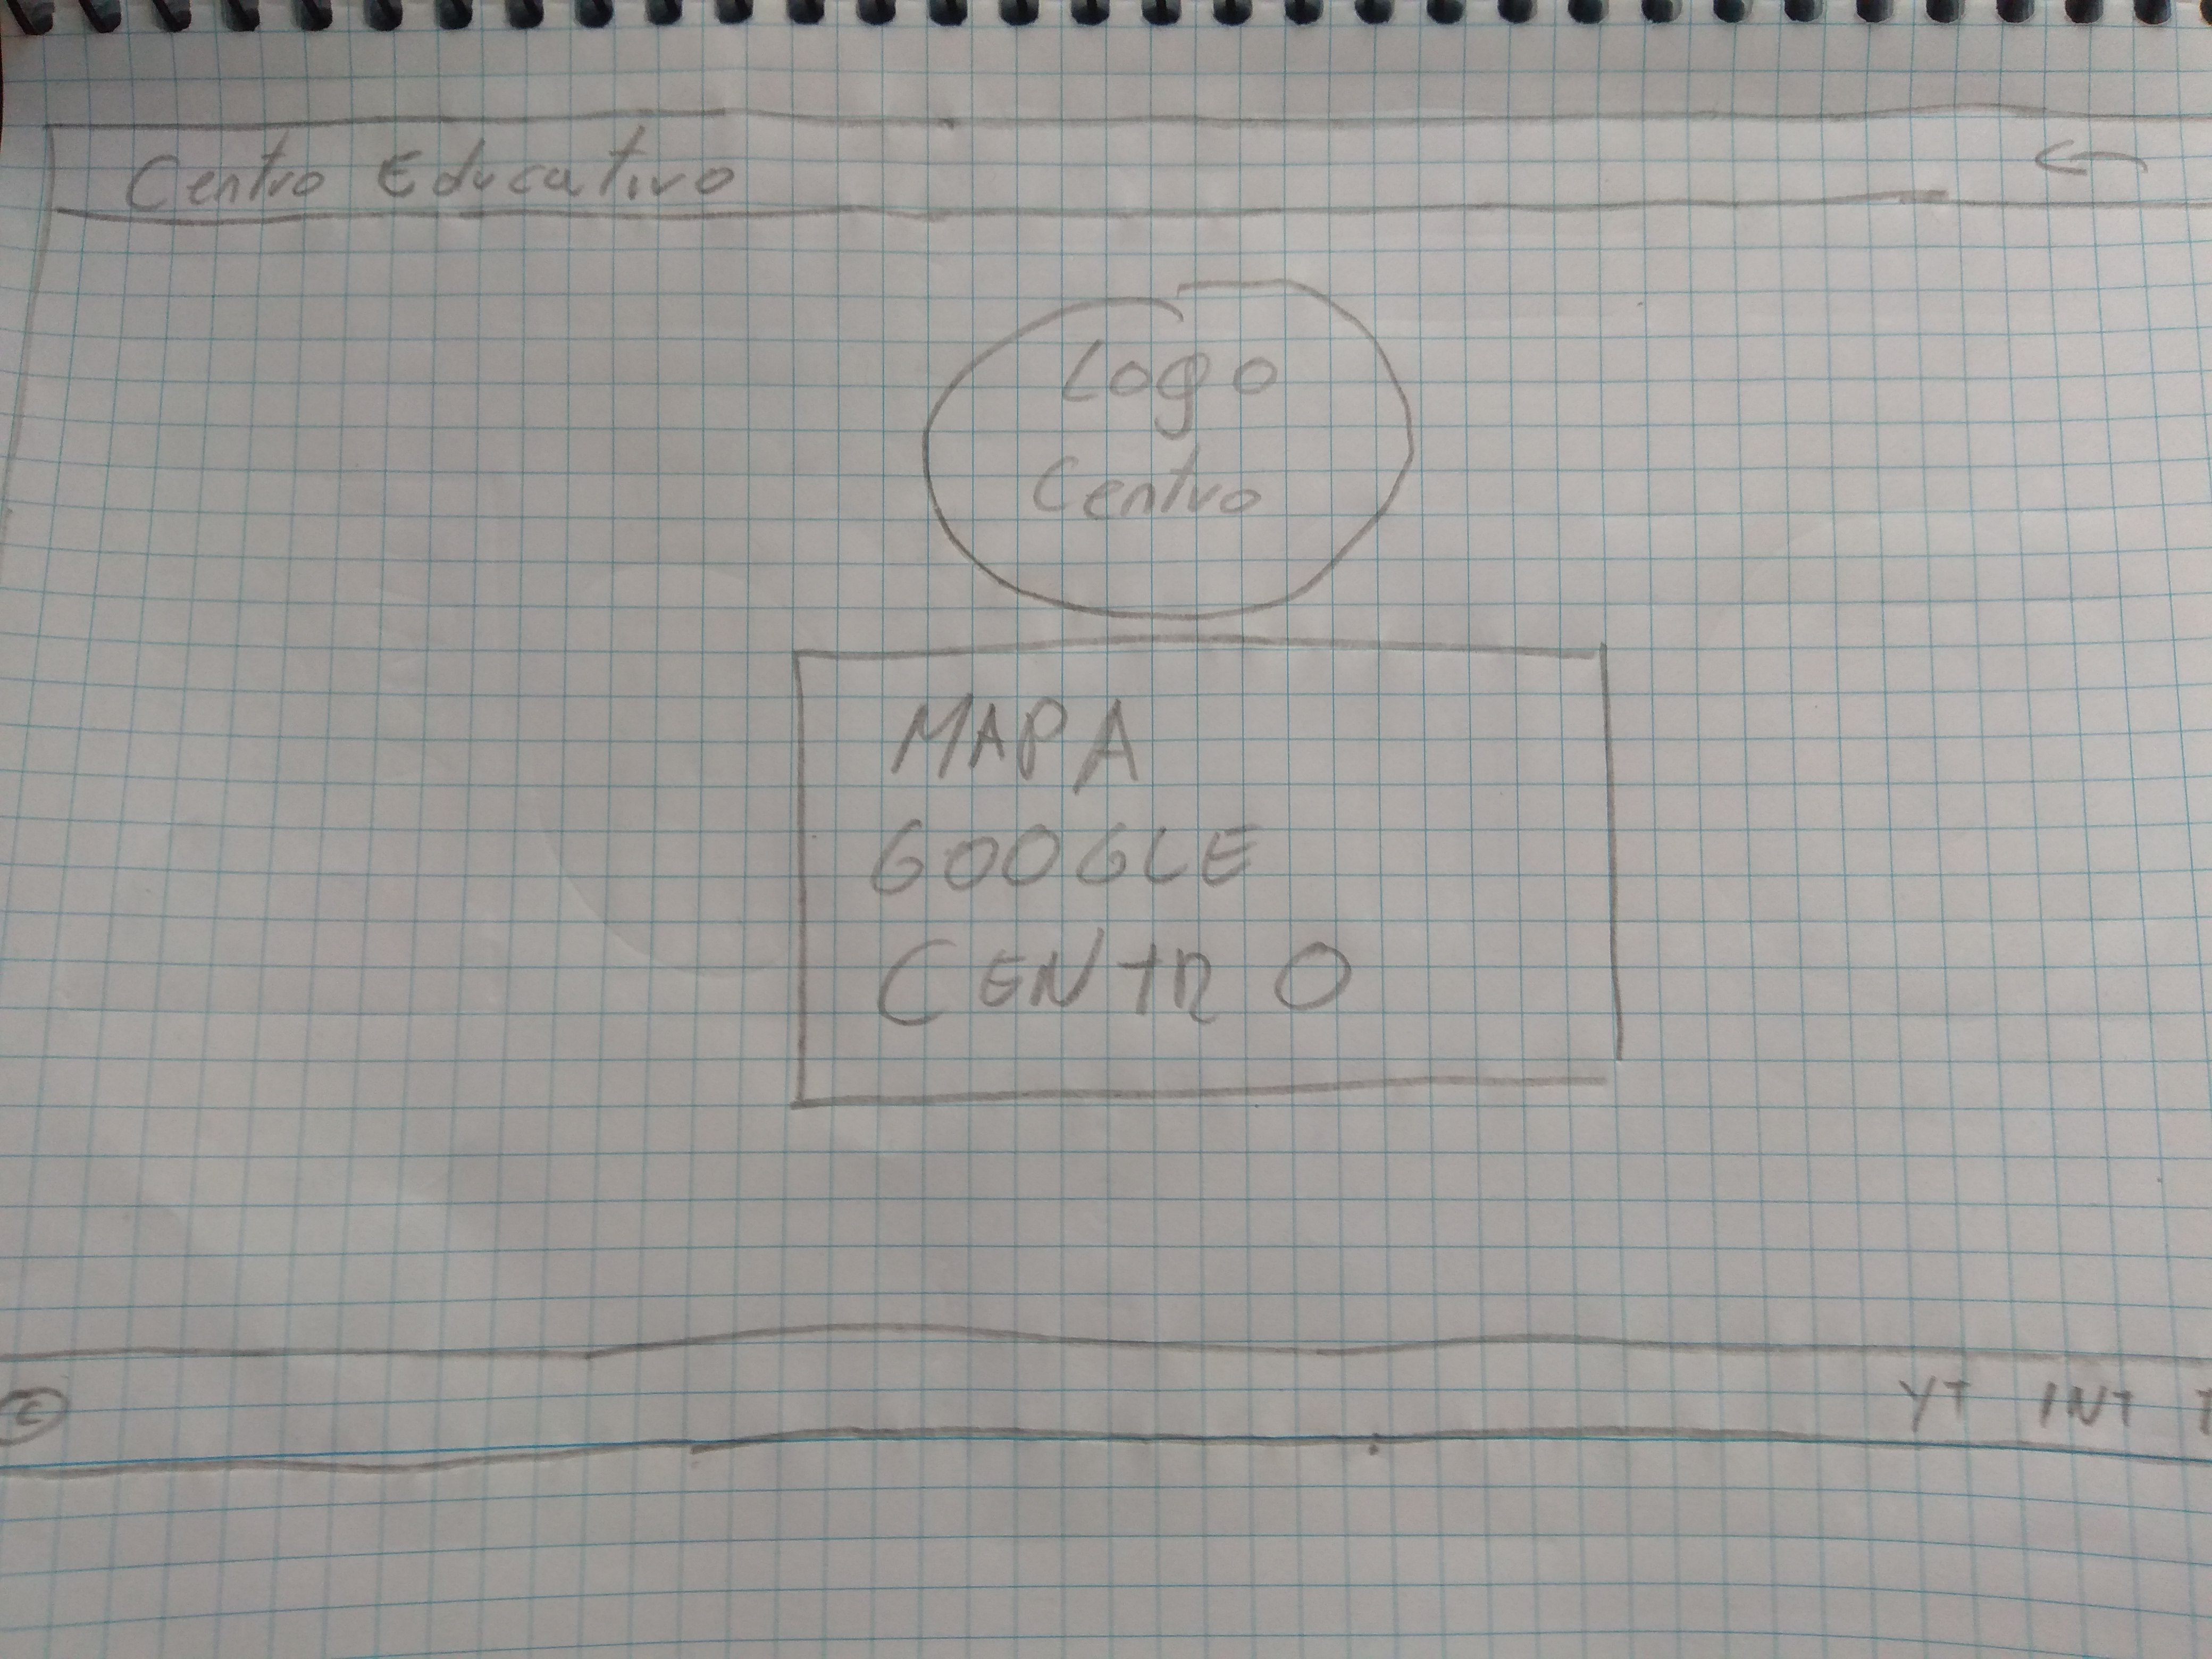 Centro Educativo
Logo
Centro
MAPA
GOOGLE
CENTRO
© YT INT